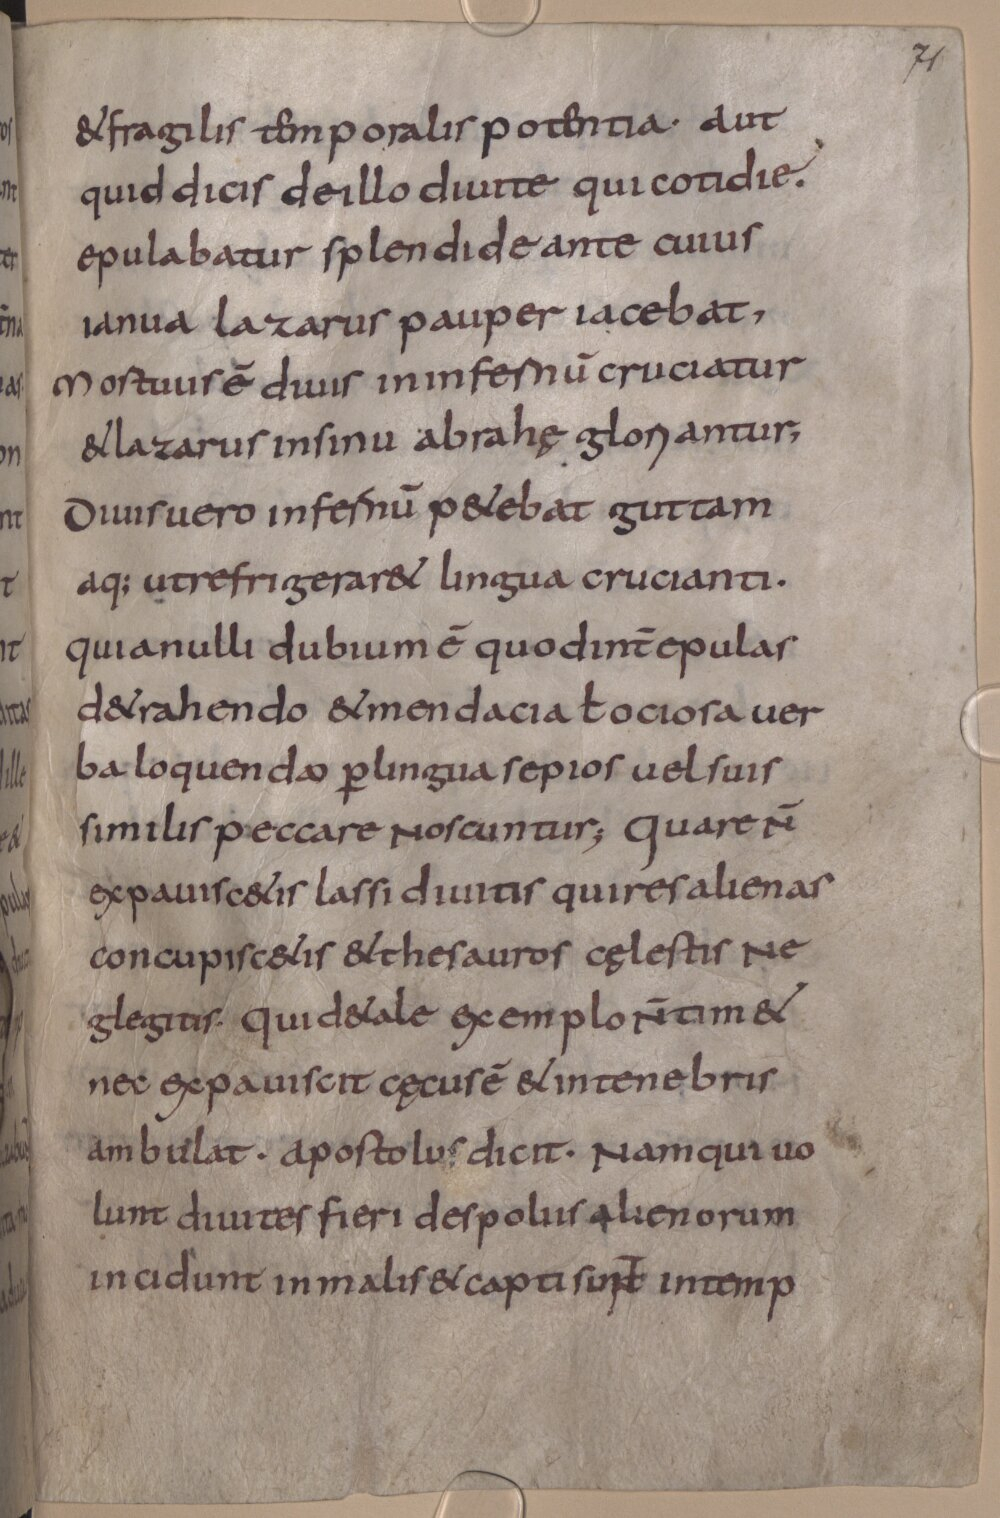 71
&fragilis temporalis potentia· aut
quid dicis de illo diuite qui cotidie.
epulabatur splendide ante cuius
ianua lazarus pauper iacebat,
Mortuus ē diuis in infernū cruciatur
&lazarus insinu abrahę gloriantur;
Diuis uero infernū p&ebat guttam
aq; utrefrigerar& lingua crucianti.
quia nulli dubium ē quod int̄ epulas
d&rahendo &mendacia ł ociosa uer
ba loquendo ꝑlingua sepios uel suis
similis peccare noscuntur; Quare n̄
expauisc&is lassi diuitis qui res alienas
concupisc&is &thesauros cęlestis ne
glegitis. Quid&ale exemplo n̄ tim&
nec expauiscit cęcus ē &intenebris
ambulat. apostolus dicit. Namqui uo
lunt diuites fieri despolus alienorum
incidunt in malis &capti sunt intemp